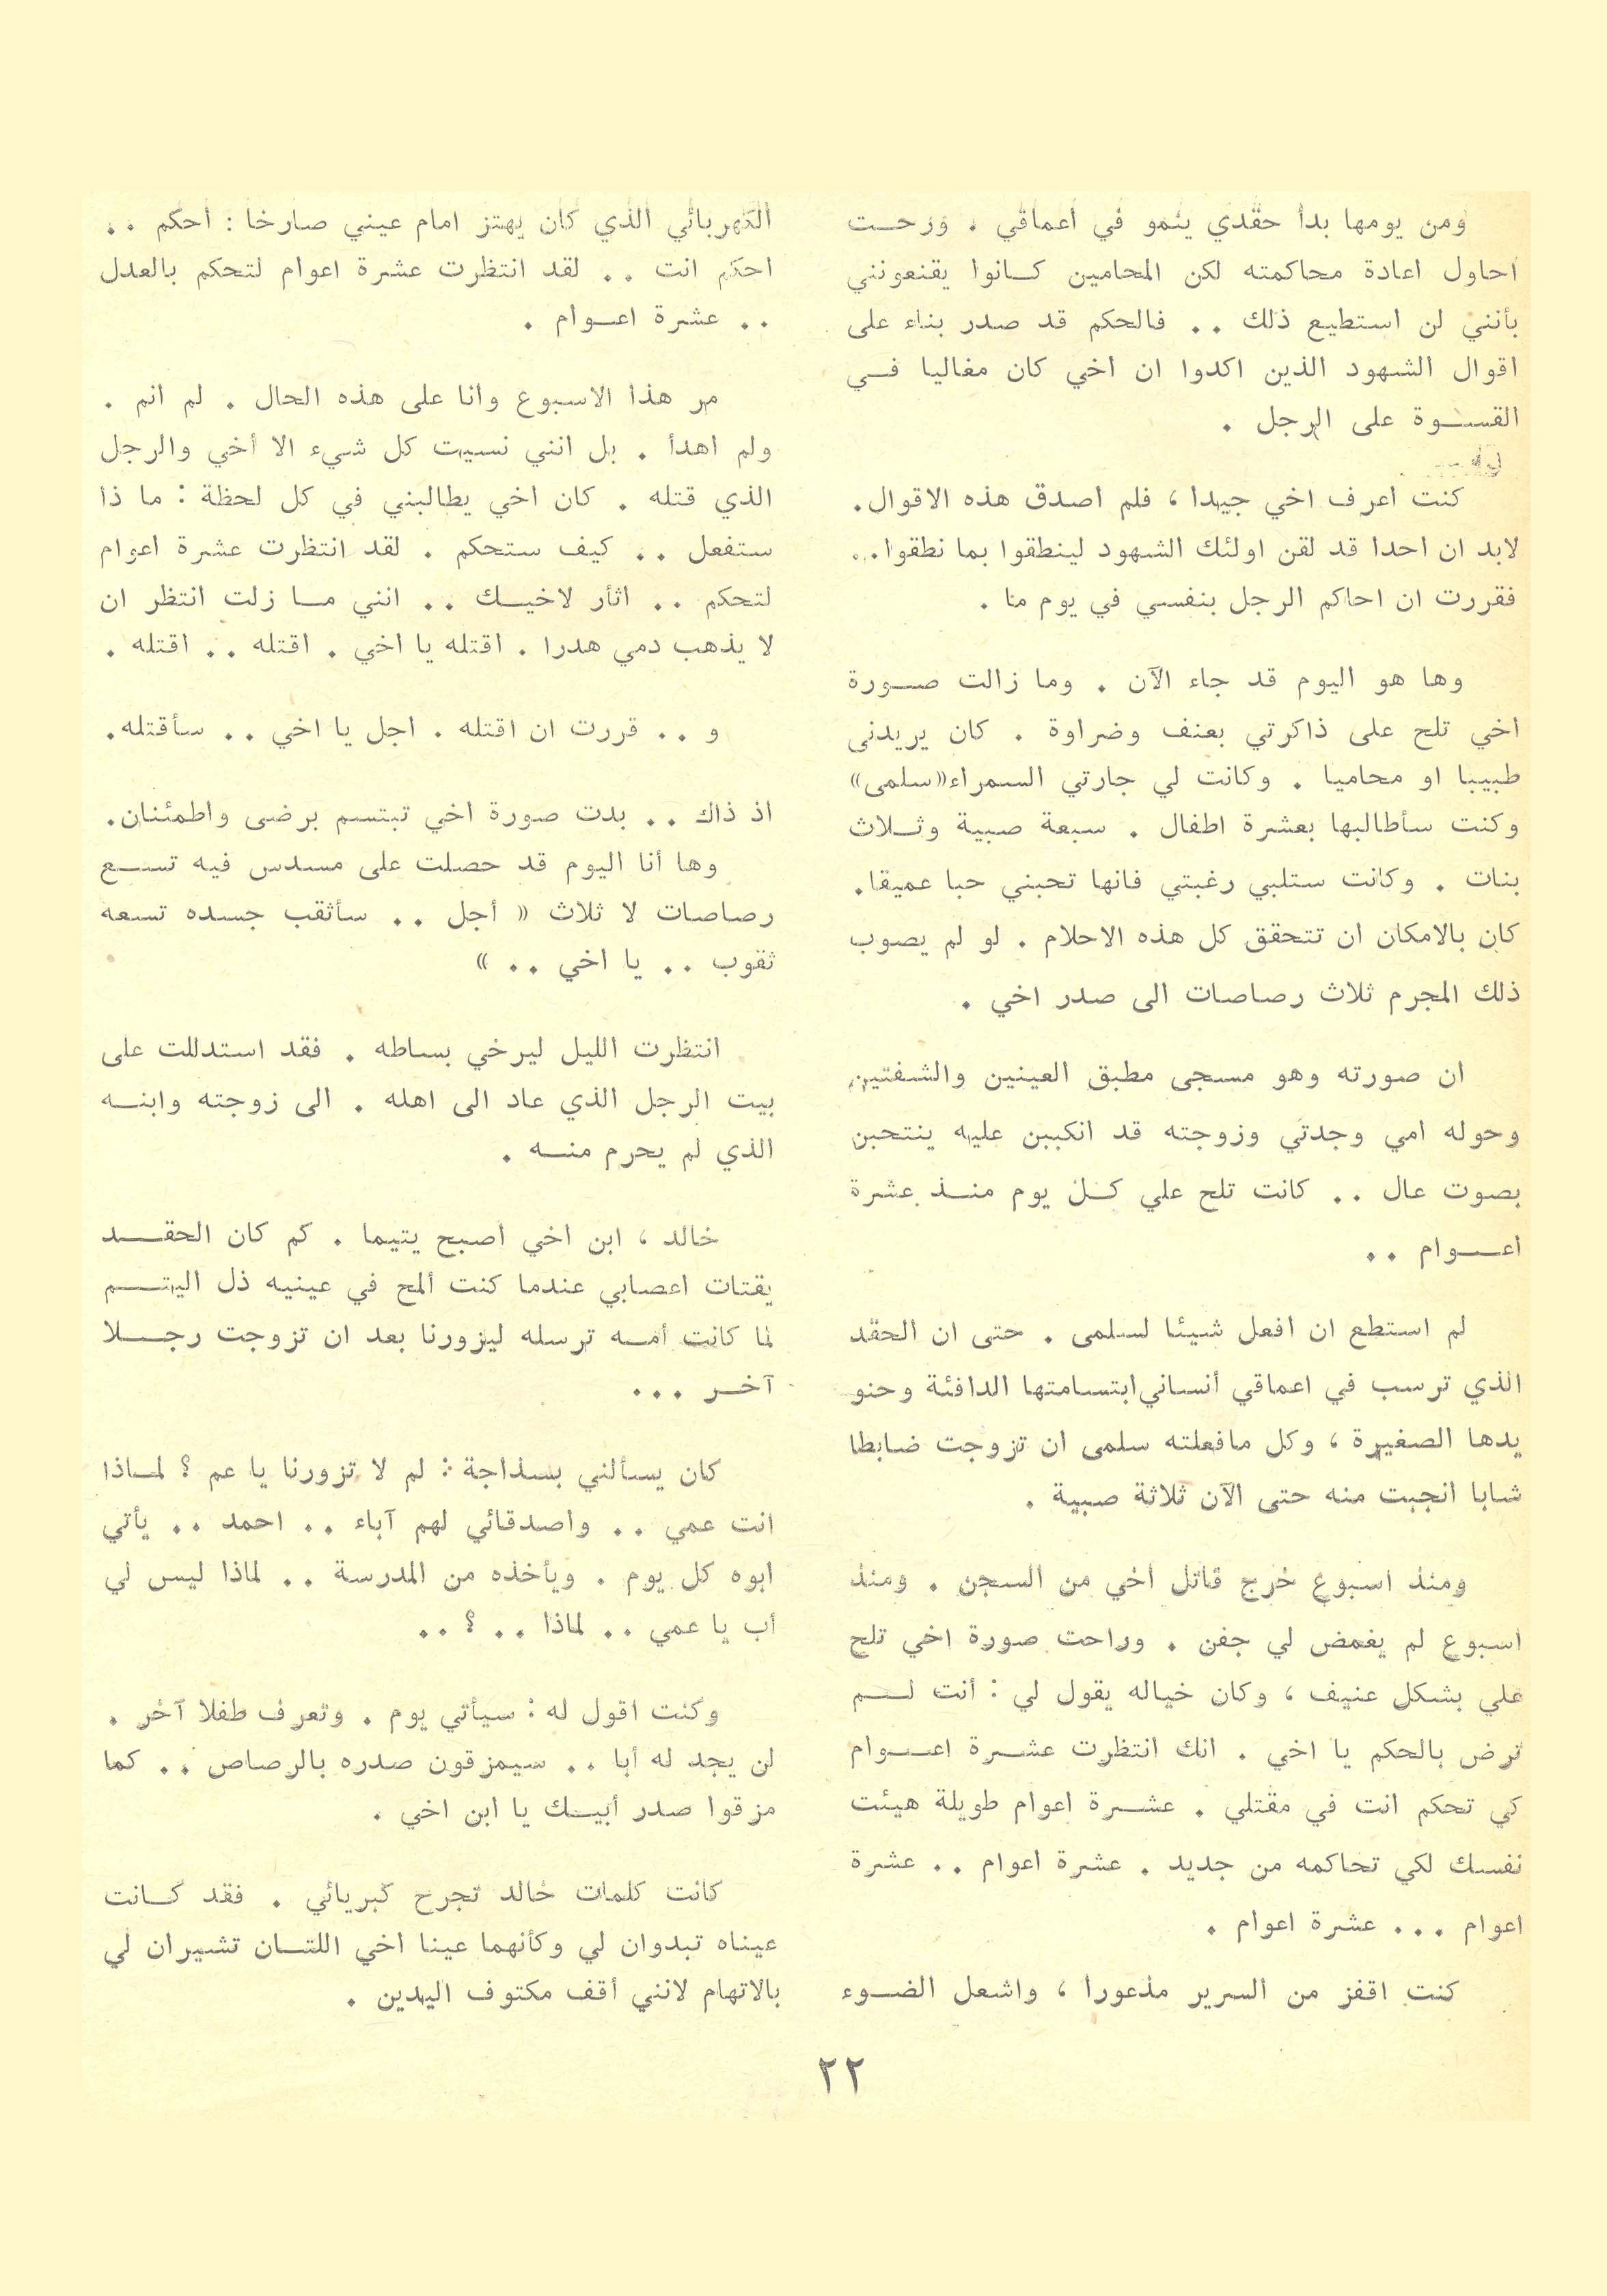 ومن يومها بدأ حقدي ينمو في اعماقي . ورحت
احاول اعادة محاكمته لكن المحامين كانوا يقنعونني
بأنني لن استطيع ذلك .. فالحكم قد صدر بناء على
اقوال الشهود الذين اكدوا ان اخي كان مغاليا في
القسوة على الرجل .
كنت اعرف اخي جيدا ، فلم اصدق هذه الاقوال.
لابد ان احدا قد لقن اولئك الشهود لينطقوا بما نطقوا..
فقررت ان احاكم الرجل بنفسي في يوم ما .
وها هو اليوم قد جاء الآن . وما زالت صورة
اخي تلح على ذاكرتي بعنف وضراوة . كان يريدنى
طبيبا او محاميا . وكانت لي جارتي السمراء«سلمى»
وكنت سأطالبها بعشرة اطفال . سبعة صبية وثلاث
بنات . وكانت ستلبي رغبتي فانها تحبني حبا عميقا.
كان بالامكان ان تتحقق كل هذه الاحلام . لو لم يصوب
ذلك المجرم ثلاث رصاصات الى صدر اخي .
ان صورته وهو مسجى مطبق العينين والشفتين
وحوله امي وجدتي وزوجته قد انكببن عليه ينتحبن
بصوت عال .. كانت تلح علي كل يوم منذ عشرة
اعوام ..
لم استطع ان افعل شيئا لسلمى . حتى ان الحقد
الذي ترسب في اعماقي أنساني ابتسامتها الدافئة وحنو
يدها الصغيرة ، وكل مافعلته سلمى ان تزوجت ضابطا
شابا انجبت منه حتى الآن ثلاثة صبية .
ومنذ اسبوع خرج قاتل اخي من السجن . ومنذ
اسبوع لم يغمض لي جفن . وراحت صورة اخي تلح
علي بشكل عنيف ، وكان خياله يقول لي : أنت لم
ترض بالحكم يا اخي . انك انتظرت عشرة اعوام
كي تحكم انت في مقتلي . عشرة اعوام طويلة هيئت
نفسك لكي تحاكمه من جديد . عشرة اعوام .. عشرة
اعوام ... عشرة اعوام .
كنت اقفز من السرير مذعورا ، واشعل الضوء
الكهربائي الذي كان يهتز امام عيني صارخا : احكم ..
احكم انت .. لقد انتظرت عشرة اعوام لتحكم بالعدل
.. عشرة اعوام .
مر هذا الاسبوع وانا على هذه الحال . لم انم .
ولم اهدأ . بل انني نسيت كل شيء الا أخي والرجل
الذي قتله . كان اخي يطالبني في كل لحظة : ما ذا
ستفعل .. كيف ستحكم . لقد انتظرت عشرة اعوام
لتحكم .. اثأر لاخيك .. انني ما زلت انتظر ان
لا يذهب دمي هدرا . اقتله يا اخي . اقتله .. اقتله .
و .. قررت ان اقتله . اجل يا اخي .. سأقتله.
اذ ذاك .. بدت صورة اخي تبتسم برضى واطمئنان.
وها أنا اليوم قد حصلت على مسدس فيه تسع
رصاصات لا ثلاث « أجل .. سأثقب جسده تسعه
ثقوب .. يا اخي .. »
انتظرت الليل ليرخي بساطه . فقد استدللت على
بيت الرجل الذي عاد الى اهله . الى زوجته وابنه
الذي لم يحرم منه .
خالد ، ابن اخي اصبح يتيما . كم كان الحقد
يقتات اعصابي عندما كنت ألمح في عينيه ذل اليتم
لما كانت أمه ترسله ليزورنا بعد ان تزوجت رجلا
آخر ...
كان يسألني بسذاجة : لم لا تزورنا يا عم ؟ لماذا
انت عمي .. واصدقائي لهم آباء .. احمد .. يأتي
ابوه كل يوم . ويأخذه من المدرسة .. لماذا ليس لي
أب يا عمي .. لماذا .. ؟ ..
وكنت اقول له : سيأتي يوم . وتعرف طفلا آخر .
لن يجد له أبا .. سيمزقون صدره بالرصاص .. كما
مزقوا صدر أبيك يا ابن اخي .
كانت كلمات خالد تجرح كبريائي . فقد كانت
عيناه تبدوان لي وكأنهما عينا اخي اللتان تشيران لي
بالاتهام لانني أقف مكتوف اليدين .
٢٢